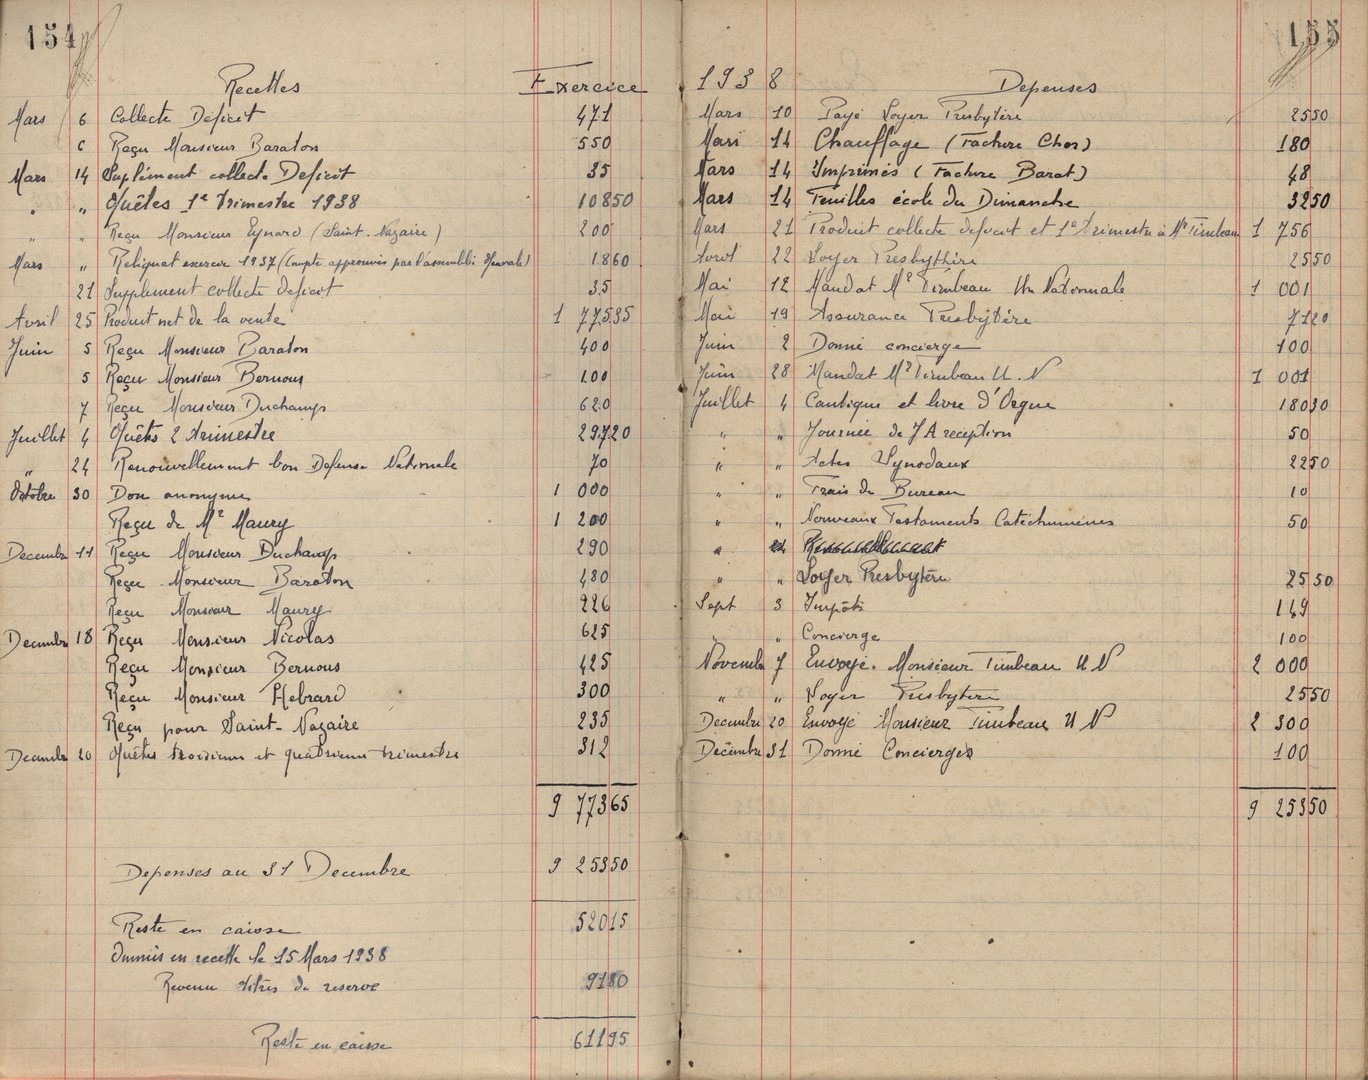 154
Recettes Exercice
Mars 6 Collecte Deficit 471
6 Reçu Monsieur Baraton 550
Mars 14 Suplément collecte Deficit 35
" " Quêtes 1e trimestre 1938 108 50
" " Reçu Monsieur Eynard (Saint-Nazaire) 200
Mars " Reliquat exercice 1937 (Compte approuvés par l'assemblée Generale) 18 60
21 Supplement collecte deficit 35
Avril 25 Produit net de la vente 1 775 35
Juin 5 Reçu Monsieur Baraton 400
5 Reçu Monsieur Bernous 100
7 Reçu Monsieur Duchamp 620
Juillet 4 Quêts 2 trimestre 297 20
" 24 Renouvellement bon Defense Nationale 70
Octobre 30 Don anonyme 1 000
Reçu de Mr Maury 1 200
Decembre 11 Reçu Monsieur Duchamp 290
Reçu Monsieur Baraton 480
Reçu Monsieur Maury 226
Decembre 18 Reçu Monsieur Nicolas 625
Reçu Monsieur Bernous 425
Reçu Monsieur Hebrard 300
Reçu pour Saint-Nazaire 235
Decembre 20 Quêtes troisieme et quatrieme trimestre 312
9 773 65
Depenses au 31 Decembre 9 253 50
Reste en caisse 520 15
Ommis en recette le 15 Mars 1938
Revenu titres de reserve 91 80
Reste en caisse 611 95
155
1938 Depenses
Mars 10 Payé Loyer Presbytère 25 50
Mars 14 Chauffage (Facture Chos) 180
Mars 14 Imprimés (Facture Barat) 48
Mars 14 Feuilles école du Dimanche 32 50
Mars 21 Produit collecte deficit et 1e trimestre à Mr Timbeau 1 756
Avril 22 Loyer Presbythère 25 50
Mai 12 Mandat Mr Timbeau Un Nationnale 1 001
Mai 19 Assurance Presbytère 71 20
Juin 2 Donné concierge 100
Juin 28 Mandat Mr Timbeau U.N 1 001
Juillet 4 Cantique et livre d'Orgue 180 30
" " Journée de J A reception 50
" " Actes Synodaux 22 50
" " Frais de Bureau 10
" " Nouveaux Testaments Catéchumènes 50
" "
" " Loyer Presbytère 25 50
Sept 3 Impôts 149
" " Concierge 100
Novembre 7 Envoyé Monsieur Timbeau U N 2 000
" " Loyer Presbytere 25 50
Decembre 20 Envoyé Monsieur Timbeau U N 2 300
Decembre 31 Donné Concierges 100
9 253 50